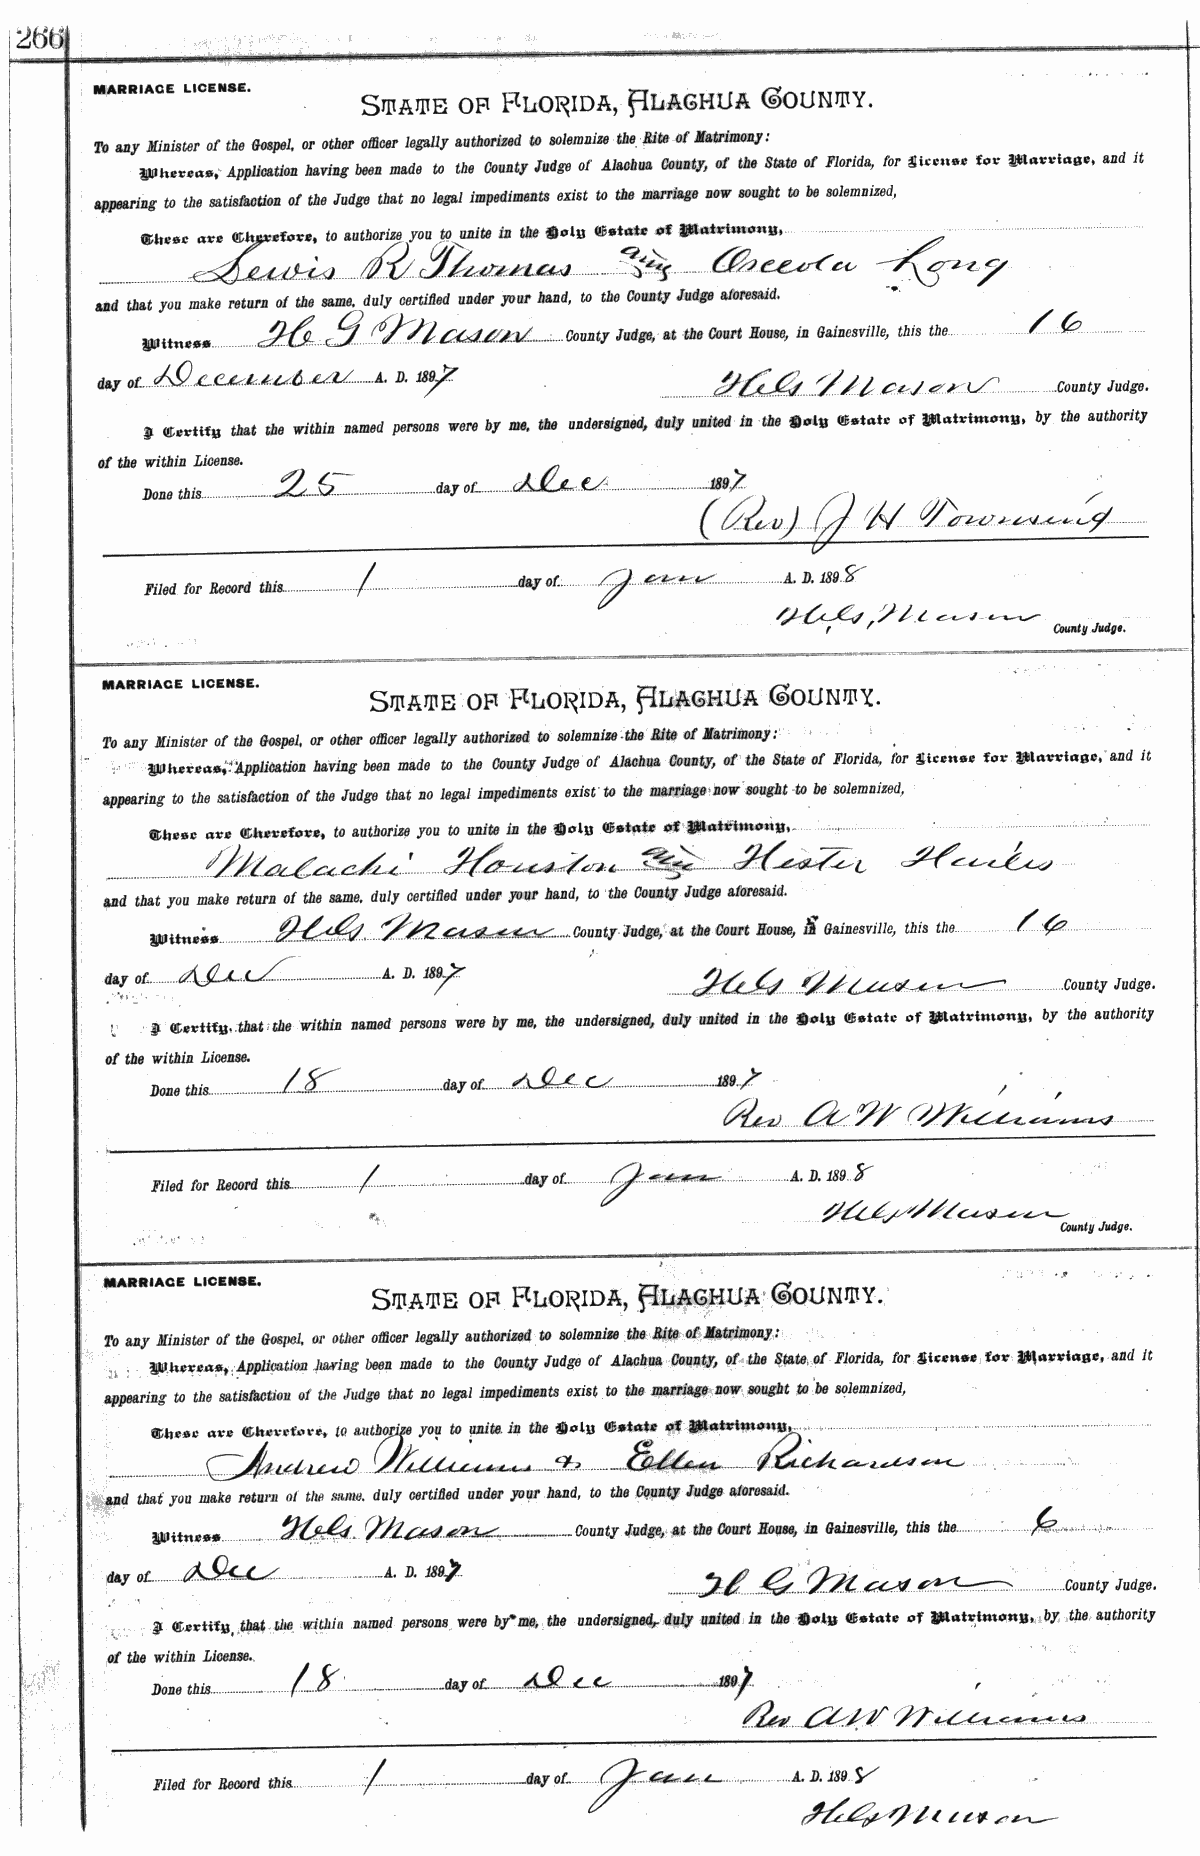 266
MARRIAGE LICENSE.
STATE OF FLORIDA, ALACHUA COUNTY.
To any Minister of the Gospel, or other officer legally authorized to solemnize the Rite of Matrimony:
Whereas, Application having been made to the County Judge of Alachua County, of the State of Florida, for License for Marriage, and it
appearing to the satisfaction of the Judge that no legal impediments exist to the marriage now sought to be solemnized,
These are Therefore, to authorize you to unite in the Holy Estate of Matrimony,
Lewis R Thomas and Osceola Long
and that you make return of the same, duly certified under your hand, to the County Judge aforesaid.
Witness H G Mason County Judge, at the Court House, in Gainesville, this the 16
day of December A. D. 1897 H G Mason County Judge.
I Certify that the within named persons were by me, the undersigned, duly united in the Holy Estate of Matrimony, by the authority
of the within License.
Done this 25 day of Dec 1897
(Rev) J H Townsend
Filed for Record this 1 day of Jan A. D. 1898
H G Mason
County Judge.
MARRIAGE LICENSE.
STATE OF FLORIDA, ALACHUA COUNTY.
To any Minister of the Gospel, or other officer legally authorized to solemnize the Rite of Matrimony:
Whereas, Application having been made to the County Judge of Alachua County, of the State of Florida, for License for Marriage, and it
appearing to the satisfaction of the Judge that no legal impediments exist to the marriage now sought to be solemnized,
These are Therefore, to authorize you to unite in the Holy Estate of Matrimony,
Malachi Houston and Hester Hailes
and that you make return of the same, duly certified under your hand, to the County Judge aforesaid.
Witness H G Mason County Judge, at the Court House, in Gainesville, this the 16
day of Dec A. D. 1897 H G Mason County Judge.
I Certify, that the within named persons were by me, the undersigned, duly united in the Holy Estate of Matrimony, by the authority
of the within License.
Done this 18 day of Dec 1897
Rev A W Williams
Filed for Record this 1 day of Jan A. D. 1898
H G Mason
County Judge.
MARRIAGE LICENSE.
STATE OF FLORIDA, ALACHUA COUNTY.
To any Minister of the Gospel, or other officer legally authorized to solemnize the Rite of Matrimony:
Whereas, Application having been made to the County Judge of Alachua County, of the State of Florida, for License for Marriage, and it
appearing to the satisfaction of the Judge that no legal impediments exist to the marriage now sought to be solemnized,
These are Therefore, to authorize you to unite in the Holy Estate of Matrimony,
Andrew Williams & Ellen Richardson
and that you make return of the same, duly certified under your hand, to the County Judge aforesaid.
Witness H G Mason County Judge, at the Court House, in Gainesville, this the 6
day of Dec A. D. 1897 H G Mason County Judge.
I Certify, that the within named persons were by me, the undersigned, duly united in the Holy Estate of Matrimony, by the authority
of the within License.
Done this 18 day of Dec 1897
Rev A W Williams
Filed for Record this 1 day of Jan A. D. 1898
H G Mason